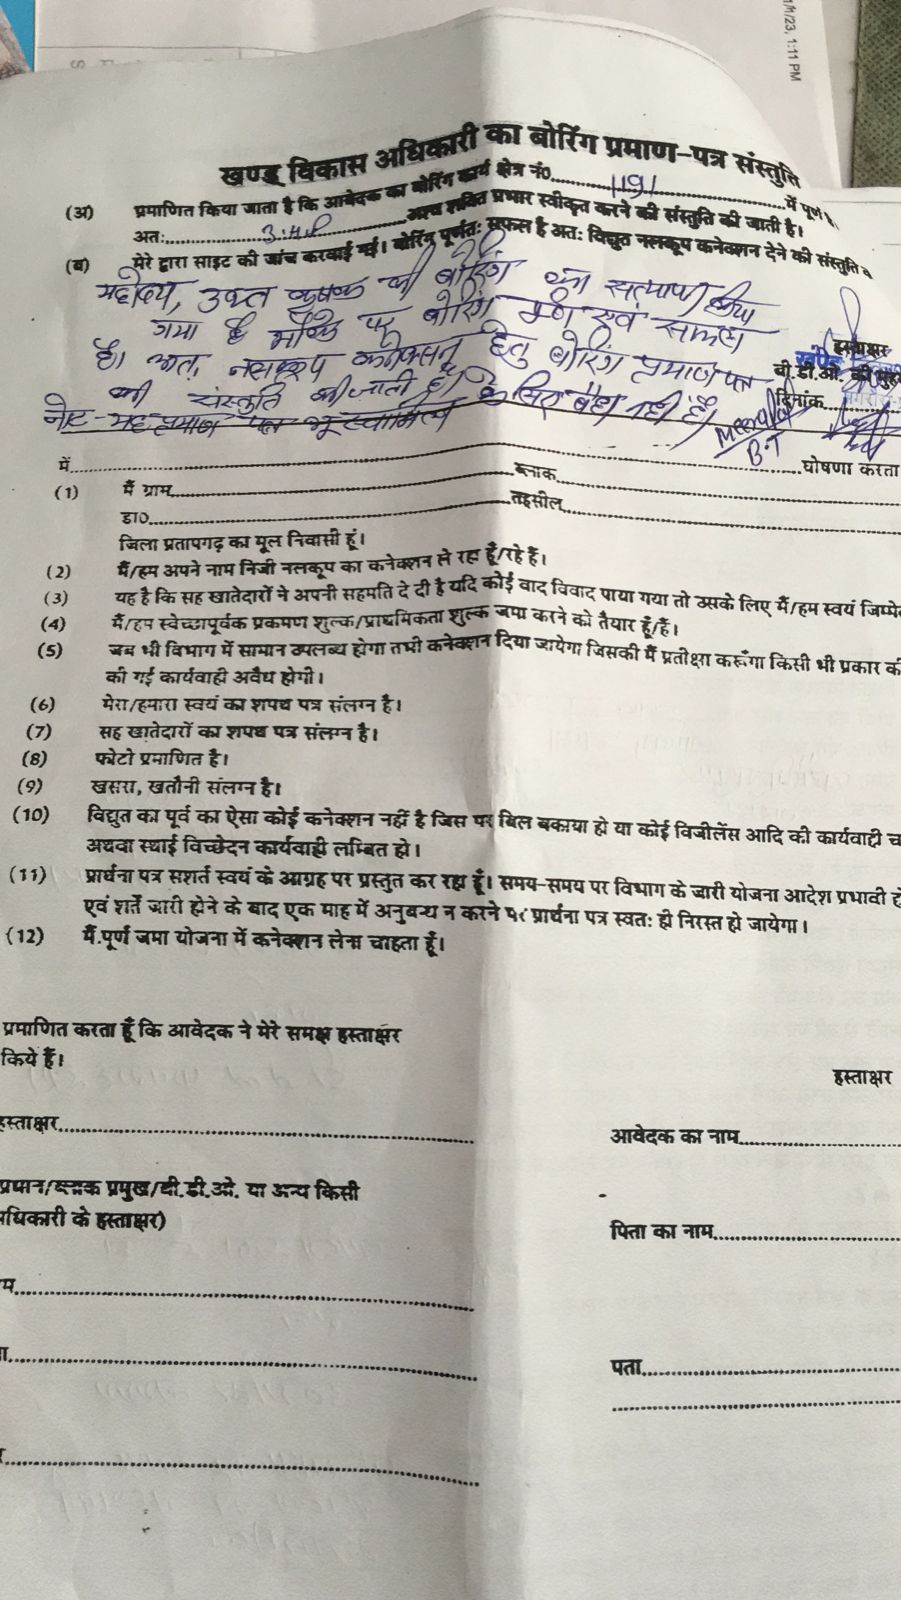 1/1/23, 1:11 PM
खण्ड विकास अधिकारी का बोरिंग प्रमाण-पत्र संस्तुति
(अ) प्रमाणित किया जाता है कि आवेदक का बोरिंग कार्य क्षेत्र नं०..........1191..........में पूर्ण
अतः..........3.H.P..........अश्व शक्ति प्रभार स्वीकृत करने की संस्तुति की जाती है।
(ब) मेरे द्वारा साइट की जांच करवाई गई। बोरिंग पूर्णतः सफल है अतः विद्युत नलकूप कनेक्शन देने की संस्तुति
महोदय, उक्त कृषक की बोरिंग का सत्यापन किया
गया है मौके पर बोरिंग पूर्ण एवं सफल
है। अतः नलकूप कनेक्सन हेतु बोरिंग प्रमाण पत्र
की संस्तुति की जाती है।
नोट- यह प्रमाण पत्र भू स्वामित्व के लिए वैध नहीं है।
हस्ताक्षर
खण्ड
बी.डी.ओ. की मुहर
दिनांक
B.T
में..........घोषणा करता
(1) मैं ग्राम..........ब्लाक..........
डा0..........तहसील..........
जिला प्रतापगढ़ का मूल निवासी हूं।
(2) मैं/हम अपने नाम निजी नलकूप का कनेक्शन ले रहा हूँ/रहे हैं।
(3) यह है कि सह खातेदारों ने अपनी सहमति दे दी है यदि कोई वाद विवाद पाया गया तो उसके लिए मैं/हम स्वयं जिम्मे
(4) मैं/हम स्वेच्छापूर्वक प्रकमण शुल्क/प्राथमिकता शुल्क जमा करने को तैयार हूँ/हैं।
(5) जब भी विभाग में सामान उपलब्ध होगा तभी कनेक्शन दिया जायेगा जिसकी मैं प्रतीक्षा करूँगा किसी भी प्रकार की
की गई कार्यवाही अवैध होगी।
(6) मेरा/हमारा स्वयं का शपथ पत्र संलग्न है।
(7) सह खातेदारों का शपथ पत्र संलग्न है।
(8) फोटो प्रमाणित है।
(9) खसरा, खतौनी संलग्न है।
(10) विद्युत का पूर्व का ऐसा कोई कनेक्शन नहीं है जिस पर बिल बकाया हो या कोई विजीलेंस आदि की कार्यवाही च
अथवा स्थाई विच्छेदन कार्यवाही लम्बित हो।
(11) प्रार्थना पत्र सशर्त स्वयं के आग्रह पर प्रस्तुत कर रहा हूँ। समय-समय पर विभाग के जारी योजना आदेश प्रभावी हो
एवं शर्तें जारी होने के बाद एक माह में अनुबन्ध न करने पर प्रार्थना पत्र स्वतः ही निरस्त हो जायेगा।
(12) मैं.पूर्ण जमा योजना में कनेक्शन लेना चाहता हूँ।
प्रमाणित करता हूँ कि आवेदक ने मेरे समक्ष हस्ताक्षर
किये हैं।
हस्ताक्षर
हस्ताक्षर..........
आवेदक का नाम..........
प्रधान/ब्लाक प्रमुख/बी.डी.ओ. या अन्य किसी
धिकारी के हस्ताक्षर)
पिता का नाम..........
म..........
पता..........